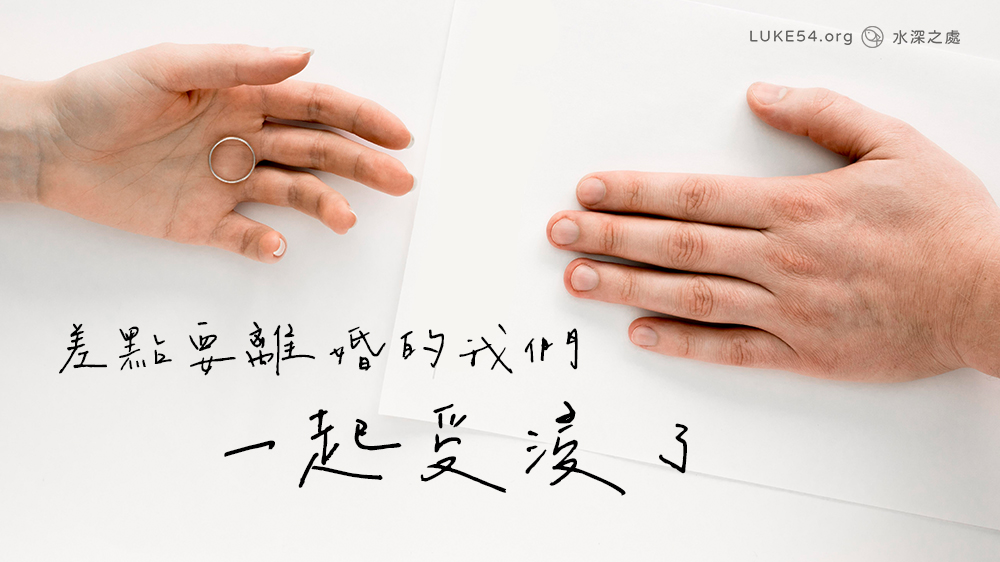 LUKE54.org 水深之處
差點要離婚的我們
一起受浸了